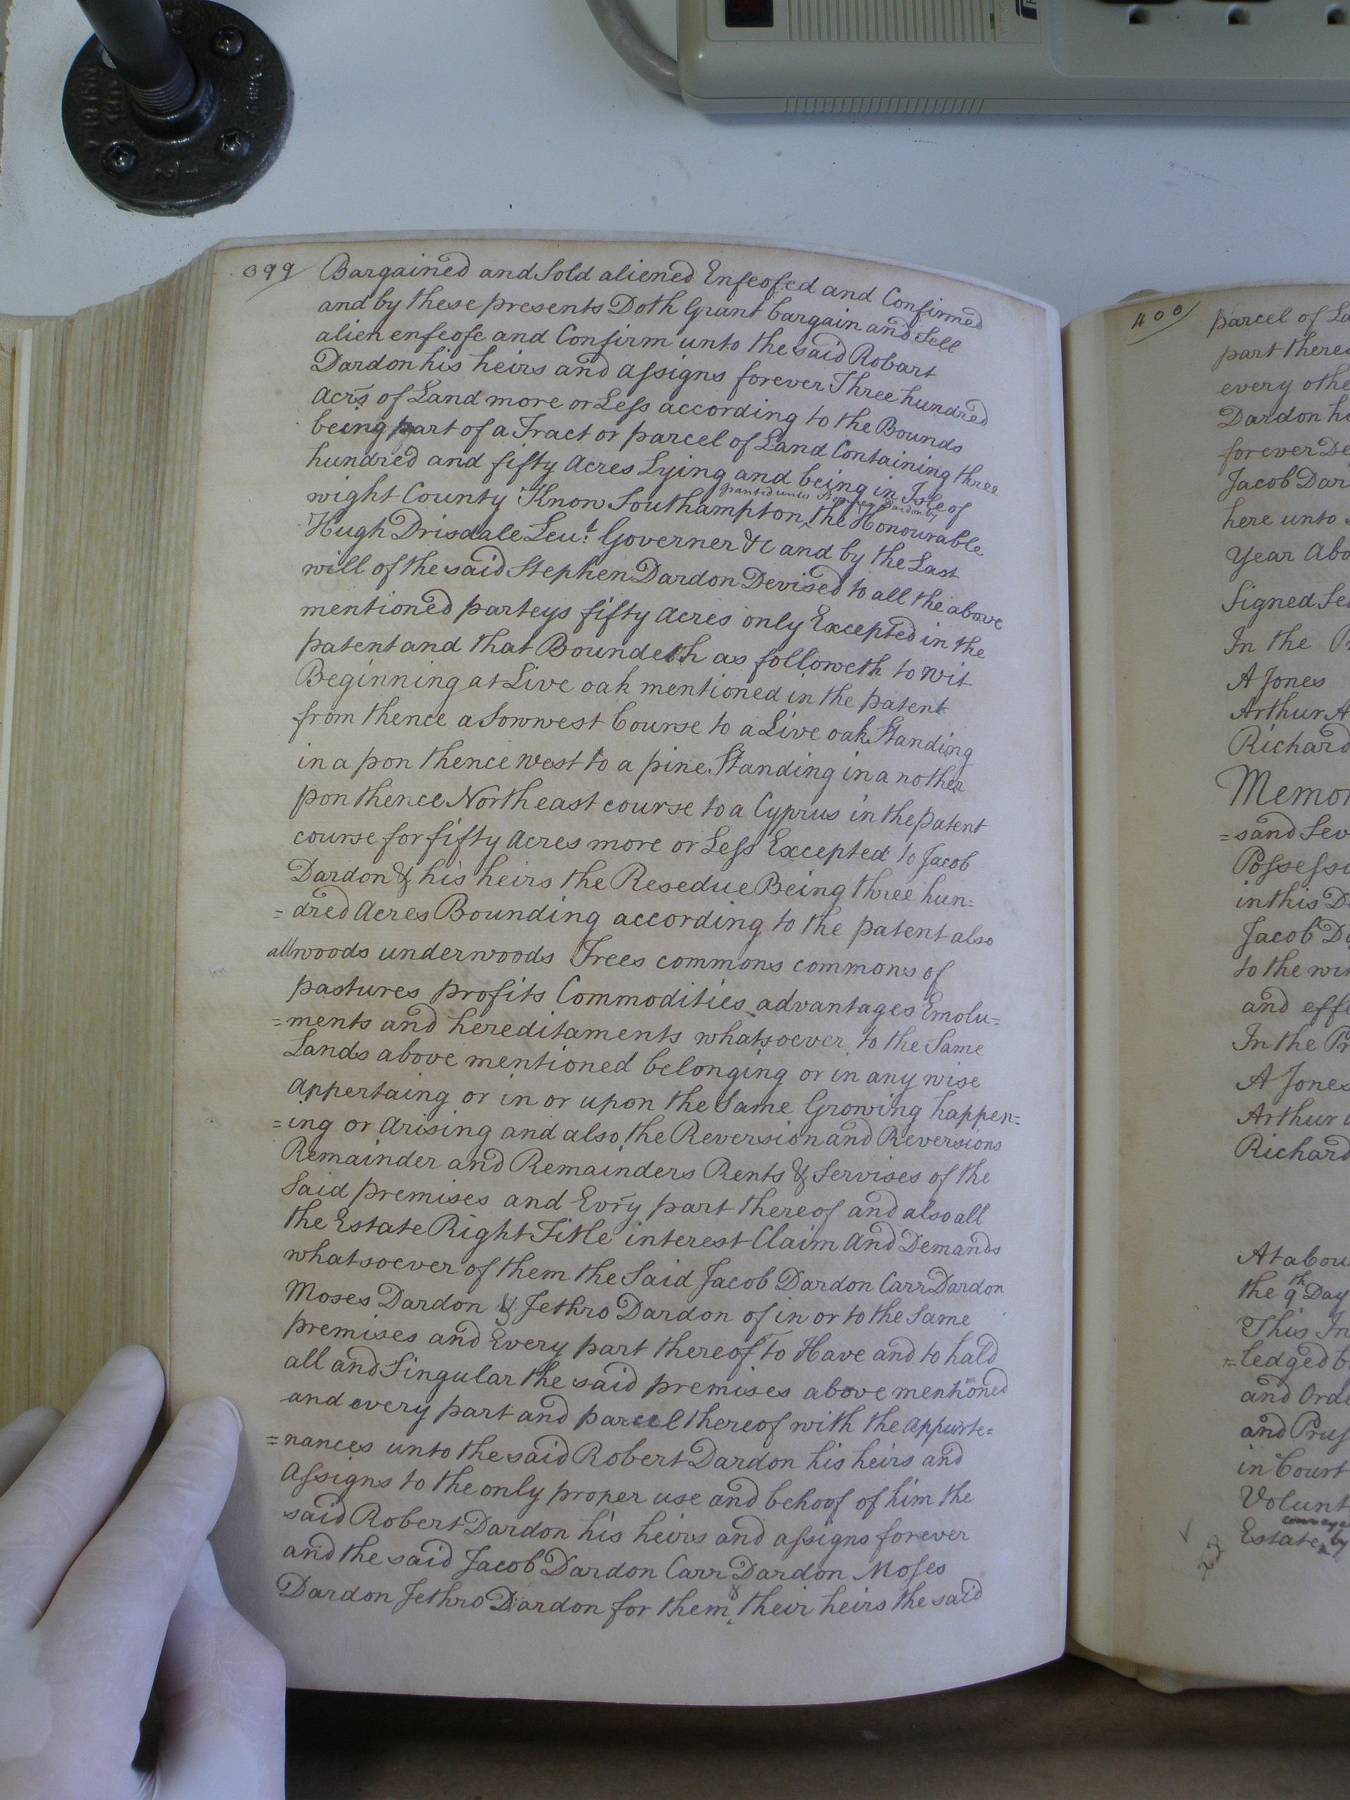 399/
Bargained and Sold aliened Enfeofed and Confirmed
and by these presents Doth Grant bargain and Sell
alien enfeofe and Confirm unto the said Robart
Dardon his heirs and assigns forever Three hundred
Acrs of Land more or Less according to the Bounds
being part of a Tract or parcel of Land Containing three
hundred and fifty Acres Lying and being in Isle of
wight County Know Southampton ^ the Honourable
granted unto Stephen Dardon by
Hugh Drisdale Leut. Governer &c and by the Last
will of the said Stephen Dardon Devised to all the above
mentioned parteys fifty Acres only Excepted in the
patent and that Boundeth as followeth to wit
Beginning at Live oak mentioned in the patent
from thence a Sowwest Course to a Live oak Standing
in a pon thence west to a pine Standing in a nother
pon thence North east course to a Cyprus in the patent
course for fifty Acres more or Less Excepted to Jacob
Dardon & his heirs the Resedue Being three hun=
=dred Acres Bounding according to the patent also
all woods underwoods Trees commons commons of
pastures profits Commodities advantages Emolu=
=ments and hereditaments whatsoever to the Same
Lands above mentioned belonging or in any wise
Appertaing or in or upon the Same Growing happen=
=ing or Arising and also the Reversion and Reversions
Remainder and Remainders Rents & Servises of the
Said premises and Evry part thereof and also all
the Estate Right Title interest Claim And Demands
whatsoever of them the Said Jacob Dardon Carr Dardon
Moses Dardon & Jethro Dardon of in or to the Same
premises and Every part thereof To Have and to hald
all and Singular the said premises above mentioned
and every part and parcel thereof with the appurte=
=nances unto the said Robert Dardon his heirs and
Assigns to the only proper use and behoof of him the
said Robert Dardon his heirs and assigns forever
and the said Jacob Dardon Carr Dardon Moses
Dardon Jethro Dardon for them & their heirs the said
400/
parcel of La
part there
every othe
Dardon h
forever De
Jacob Dar
here unto
Year Abo
Signed Se
In the P
A Jones
Arthur A
Richard
Memo
=sand Sev
Possess
in this D
Jacob Da
to the wi
and effe
In the Pr
A Jones
Arthur
Richard
At a bou
the 9th Day
This In
=ledged b
and Orde
and Prus
in Court
Volunt
conveye
Estate ^ by